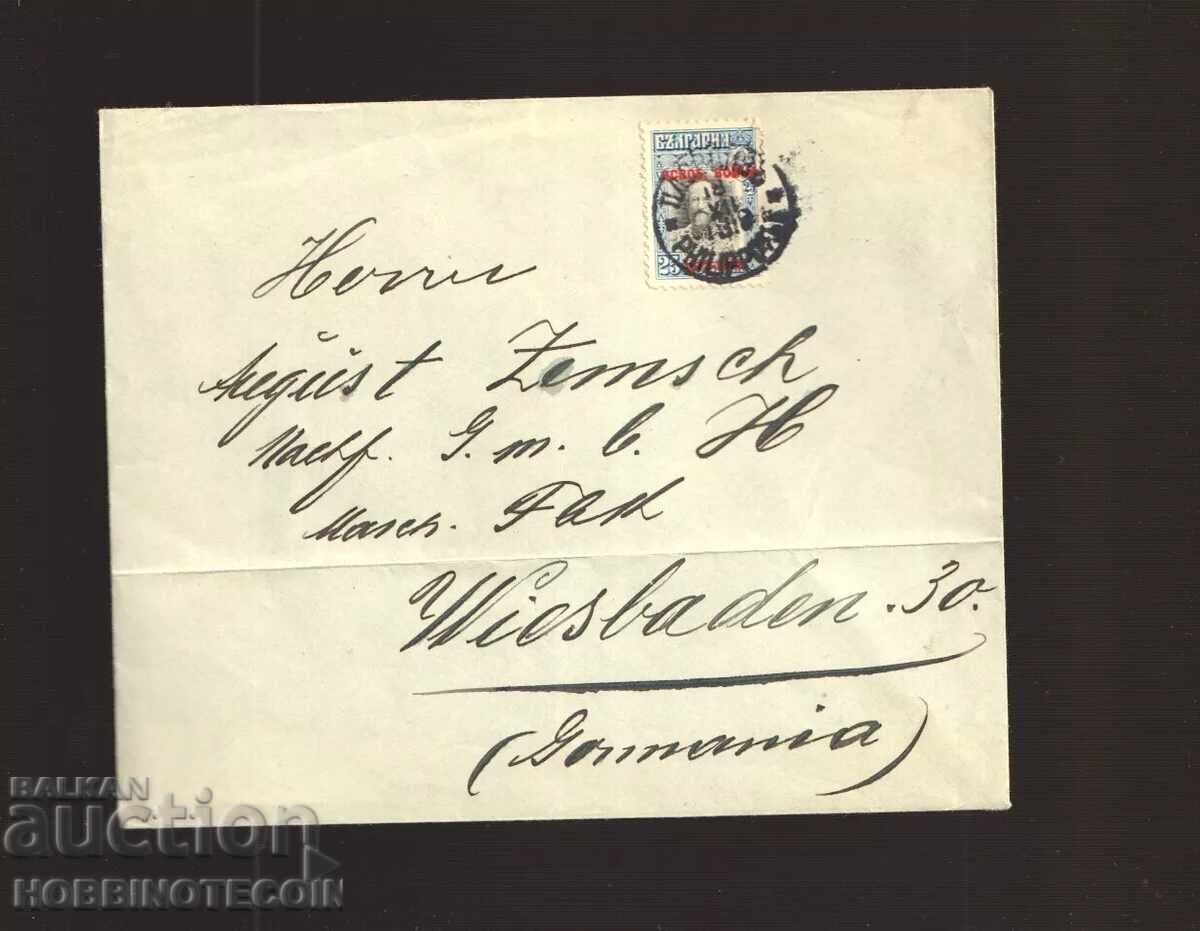 БЪЛГАРИЯ
25
PHILIPPOPLI
Herrn
August Zemsch
Nachf. G. m. b. H
Masch. Fabk
Wiesbaden. 30.
(Germania)
BALKAN
auction
HOBBINOTECOIN